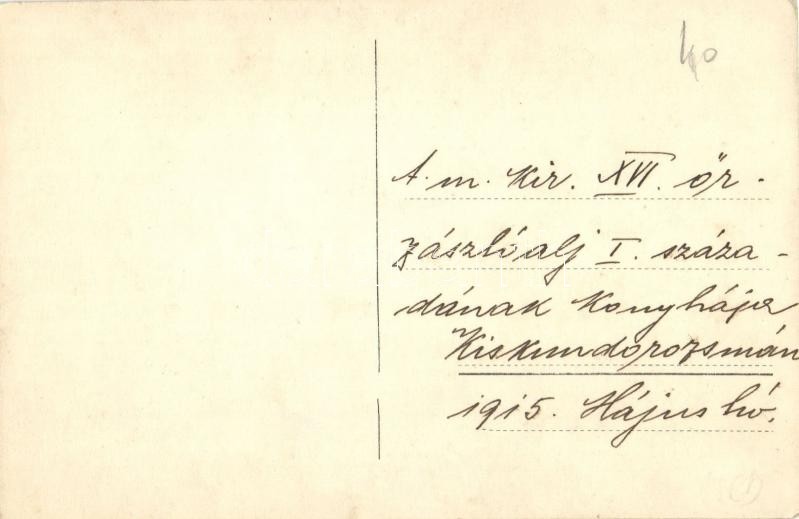 40
A. m. Kir. XVI. őr-
zászlóalj I. száza-
dának Konyhája
Kiskundorozsmán
1915. Május hó.